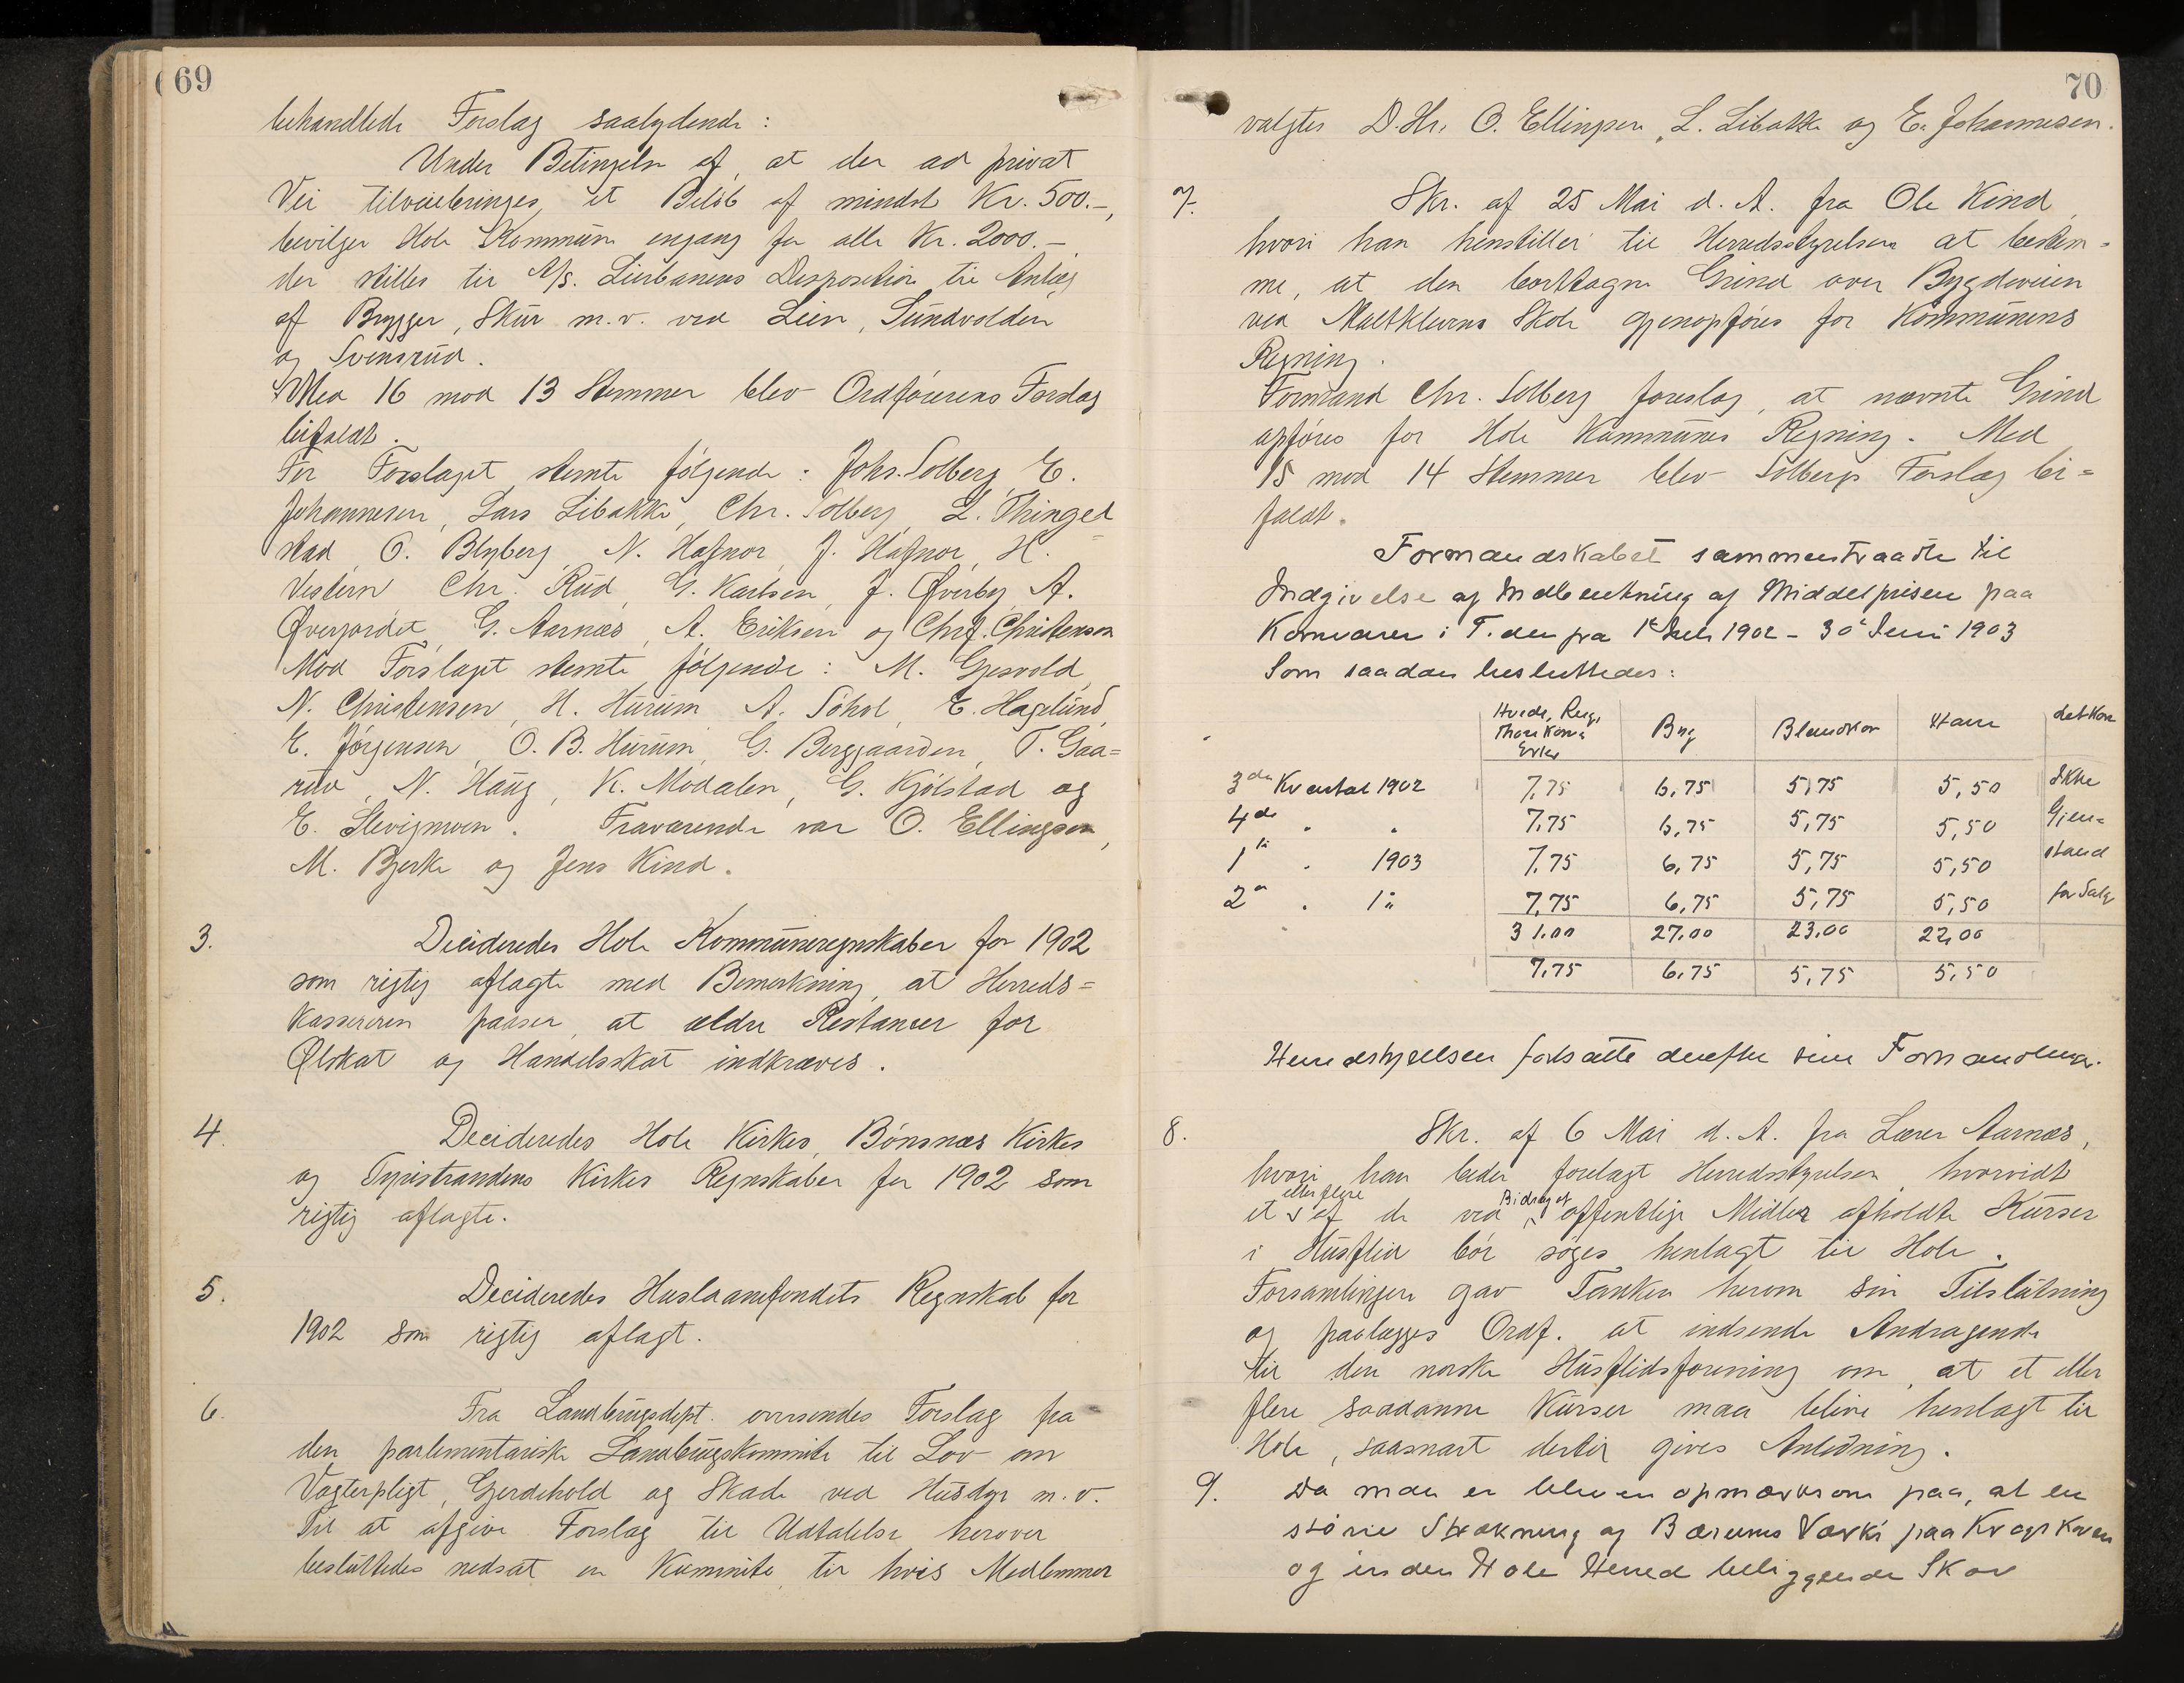 69
behandlede Forslag saalydende:
Under Betingelse af, at der ad privat
Vei tilveiebringes et Beløb af mindst Kr. 500.-,
bevilger Hole Kommune engang for alle Kr. 2000.-
der stilles til A/S. Lierbanens Disposition til Anlæg
af Brygger, Skur m.v. ved Lien, Sundvolden
og Svensrud.
Med 16 mod 13 Stemmer blev Ordførerens Forslag
bifaldt.
For Forslaget stemte følgende: Johs. Solberg, E.
Johannesen, Lars Libakke, Chr. Solberg, L. Thingel
stad, O. Blyberg, N. Hafnor, J. Hafnor, H.
Vestern Chr. Rud, G. Karlsen, J. Øverby, A.
Øverjordet, G. Aarnæs, A. Eriksen og Chrf. Christenson
Mod Forslaget stemte følgende: M. Gjesvold,
N. Christensen, H. Hurum A. Søhol, E. Hagelund,
E. Jørgensen, O. B. Hurum, G. Berggaarden, T. Gaa=
rud, N. Haug, K. Modalen, G. Kjølstad og
E. Slevigmoen. Fraværende var O. Ellingsen,
M. Bjerke og Jens Kind.
3. Decideredes Hole Kommuneregnskaber for 1902
som rigtig aflagte med Bemærkning, at Herreds=
kassereren paaser, at ældre Restancer for
Ølskat og Handelsskat indkræves.
4. Decideredes Hole Kirkes, Bønsnæs Kirkes
og Tyristrandens Kirkes Regnskaber for 1902 som
rigtig aflagte.
5. Decideredes Huslaanefondets Regnskab for
1902 som rigtig aflagt.
6. Fra Landbrugsdept. oversendes Forslag fra
den parlementariske Landbrugskommite til Lov om
Vogterpligt, Gjerdehold og Skade ved Husdyr m.v.
Til at afgive Forslag til Udtalelse herover
besluttedes nedsat en Kommite til hvis Medlemmer
70
valgtes D.Hr. O. Ellingsen, L. Libakke og E. Johannesen.
7. Skr. af 25 Mai d. A. fra Ole Kind,
hvori han henstiller til Herredsstyrelsen at bestem=
me, at den borttagne Grind over Bygdeveien
ved Maltklevens Skole gjenopføres for Kommunens
Regning.
Formand Chr. Solberg foreslog, at nævnte Grind
opføres for Hole Kommunes Regning. Med
15 mod 14 Stemmer blev Solbergs Forslag bi=
faldt.
Formandskabet sammentraadte til
Indgivelse af Indberetning af Middelprisen paa
Kornvarer i T. den fra 1 Juli 1902 - 30 Juni 1903
Som saadan besluttedes:
Hvede, Rug, Bug Blandkor Havre
Erter
3de Kvartal 1902 7,75 6,75 5,75 5,50 Ikke
4de " " 7,75 6,75 5,75 5,50 Gjen=
1te " 1903 7,75 6,75 5,75 5,50 stand
2 " 7,75 6,75 5,75 5,50 for Salg
31.00 27.00 23.00 22,00
7,75 6,75 5,75 5,50
Herredstyrelsen fortsatte derefter sine Forhandlinger.
8. Skr. af 6 Mai d. A. fra Lærer Aarnæs,
hvori han beder forelagt Herredsstyrelsen, hvorvidt
et eller flere af de ved Bidrag af offentlige Midler afholdte Kurser
i Husflid bør søges henlagt til Hole.
Forsamlingen gav Tanken herom sin Tilslutning
og paalægges Ordf. at indsende Andragende
til den norske Husflidsforening om, at et eller
flere saadanne Kurser maa blive henlagt til
Hole, saasnart dertil gives Anledning.
9. Da man er bleven opmærksom paa, at en
større Strækning af Bærums Værks paa
og inden Hole Herred beliggende Skov